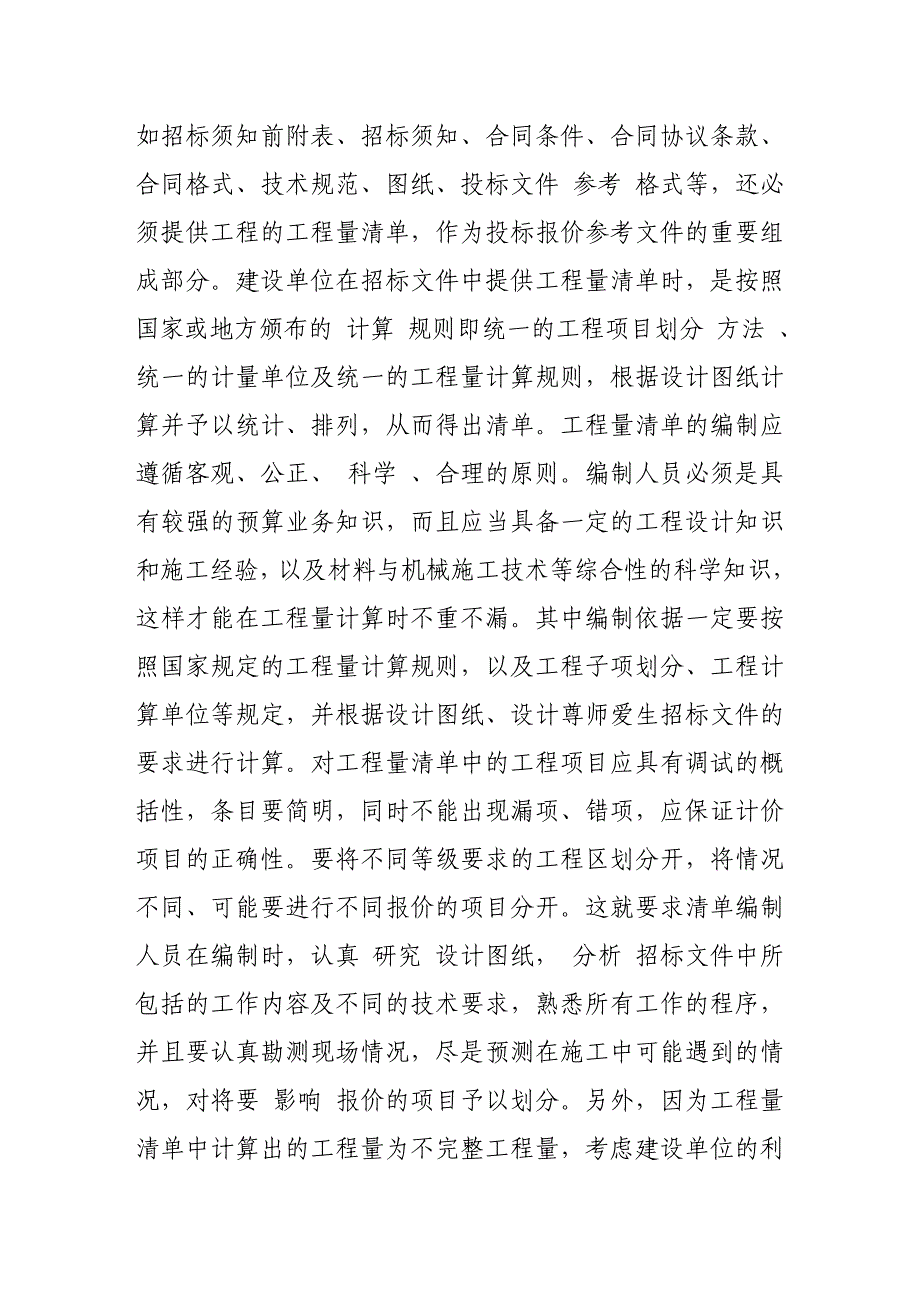 如招标须知前附表、招标须知、合同条件、合同协议条款、
合同格式、技术规范、图纸、投标文件 参考 格式等，还必
须提供工程的工程量清单，作为投标报价参考文件的重要组
成部分。建设单位在招标文件中提供工程量清单时，是按照
国家或地方颁布的 计算 规则即统一的工程项目划分 方法 、
统一的计量单位及统一的工程量计算规则，根据设计图纸计
算并予以统计、排列，从而得出清单。工程量清单的编制应
遵循客观、公正、 科学 、合理的原则。编制人员必须是具
有较强的预算业务知识，而且应当具备一定的工程设计知识
和施工经验，以及材料与机械施工技术等综合性的科学知识，
这样才能在工程量计算时不重不漏。其中编制依据一定要按
照国家规定的工程量计算规则，以及工程子项划分、工程计
算单位等规定，并根据设计图纸、设计尊师爱生招标文件的
要求进行计算。对工程量清单中的工程项目应具有调试的概
括性，条目要简明，同时不能出现漏项、错项，应保证计价
项目的正确性。要将不同等级要求的工程区划分开，将情况
不同、可能要进行不同报价的项目分开。这就要求清单编制
人员在编制时，认真 研究 设计图纸， 分析 招标文件中所
包括的工作内容及不同的技术要求，熟悉所有工作的程序，
并且要认真勘测现场情况，尽是预测在施工中可能遇到的情
况，对将要 影响 报价的项目予以划分。另外，因为工程量
清单中计算出的工程量为不完整工程量，考虑建设单位的利